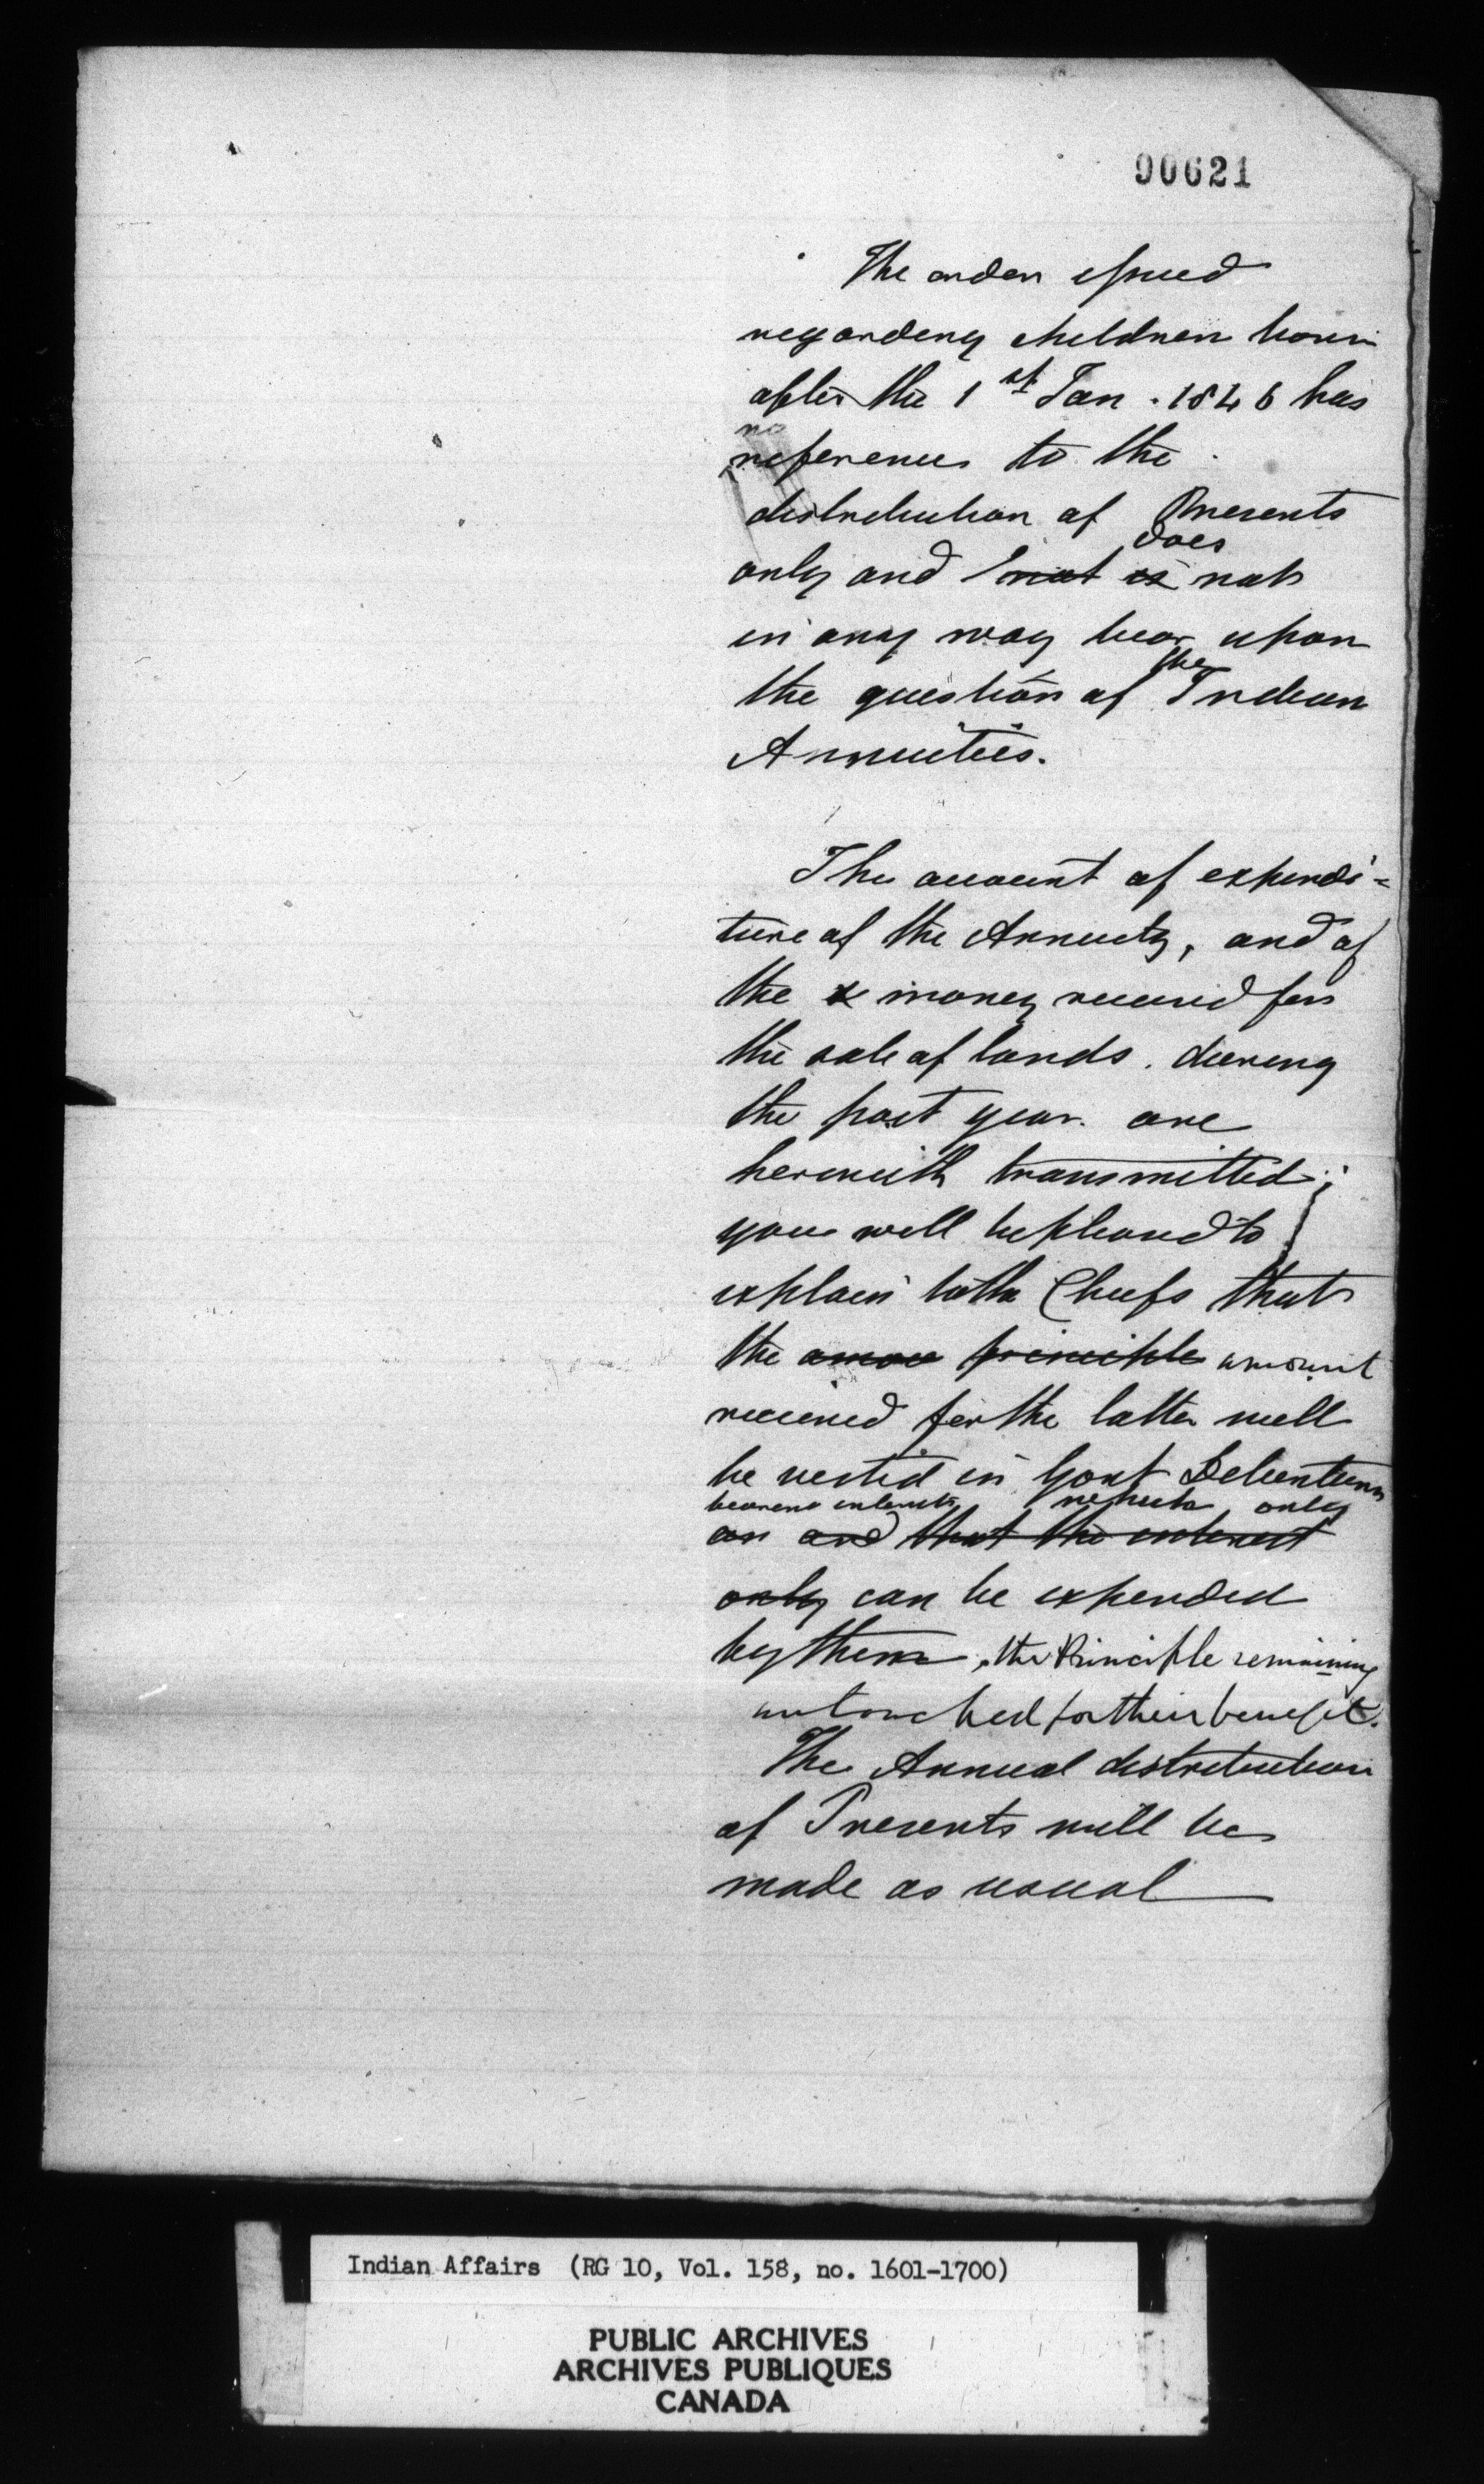 90621
The order issued
regarding children born
after the 1st Jan. 1846 has
no
reference to the
distribution of Presents
does
only and not is not
in any way bear upon
the
the question of Indian
Annuities.
The account of expendi=
ture of the Annuity, and of
the money received for
the sale of lands. during
the past year. are
herewith transmitted;
you will be pleased to
explain to the Chiefs that
the amou principle amount
received for the latter will
be vested in Govt Debentures
bearing interest, which only
an and that the interest
only can be expended
by them, the Principle remaining
untouched for their benefit.
The Annual distribution
of Presents will be
made as usual
Indian Affairs (RG 10, Vol. 158, no. 1601-1700)
PUBLIC ARCHIVES
ARCHIVES PUBLIQUES
CANADA